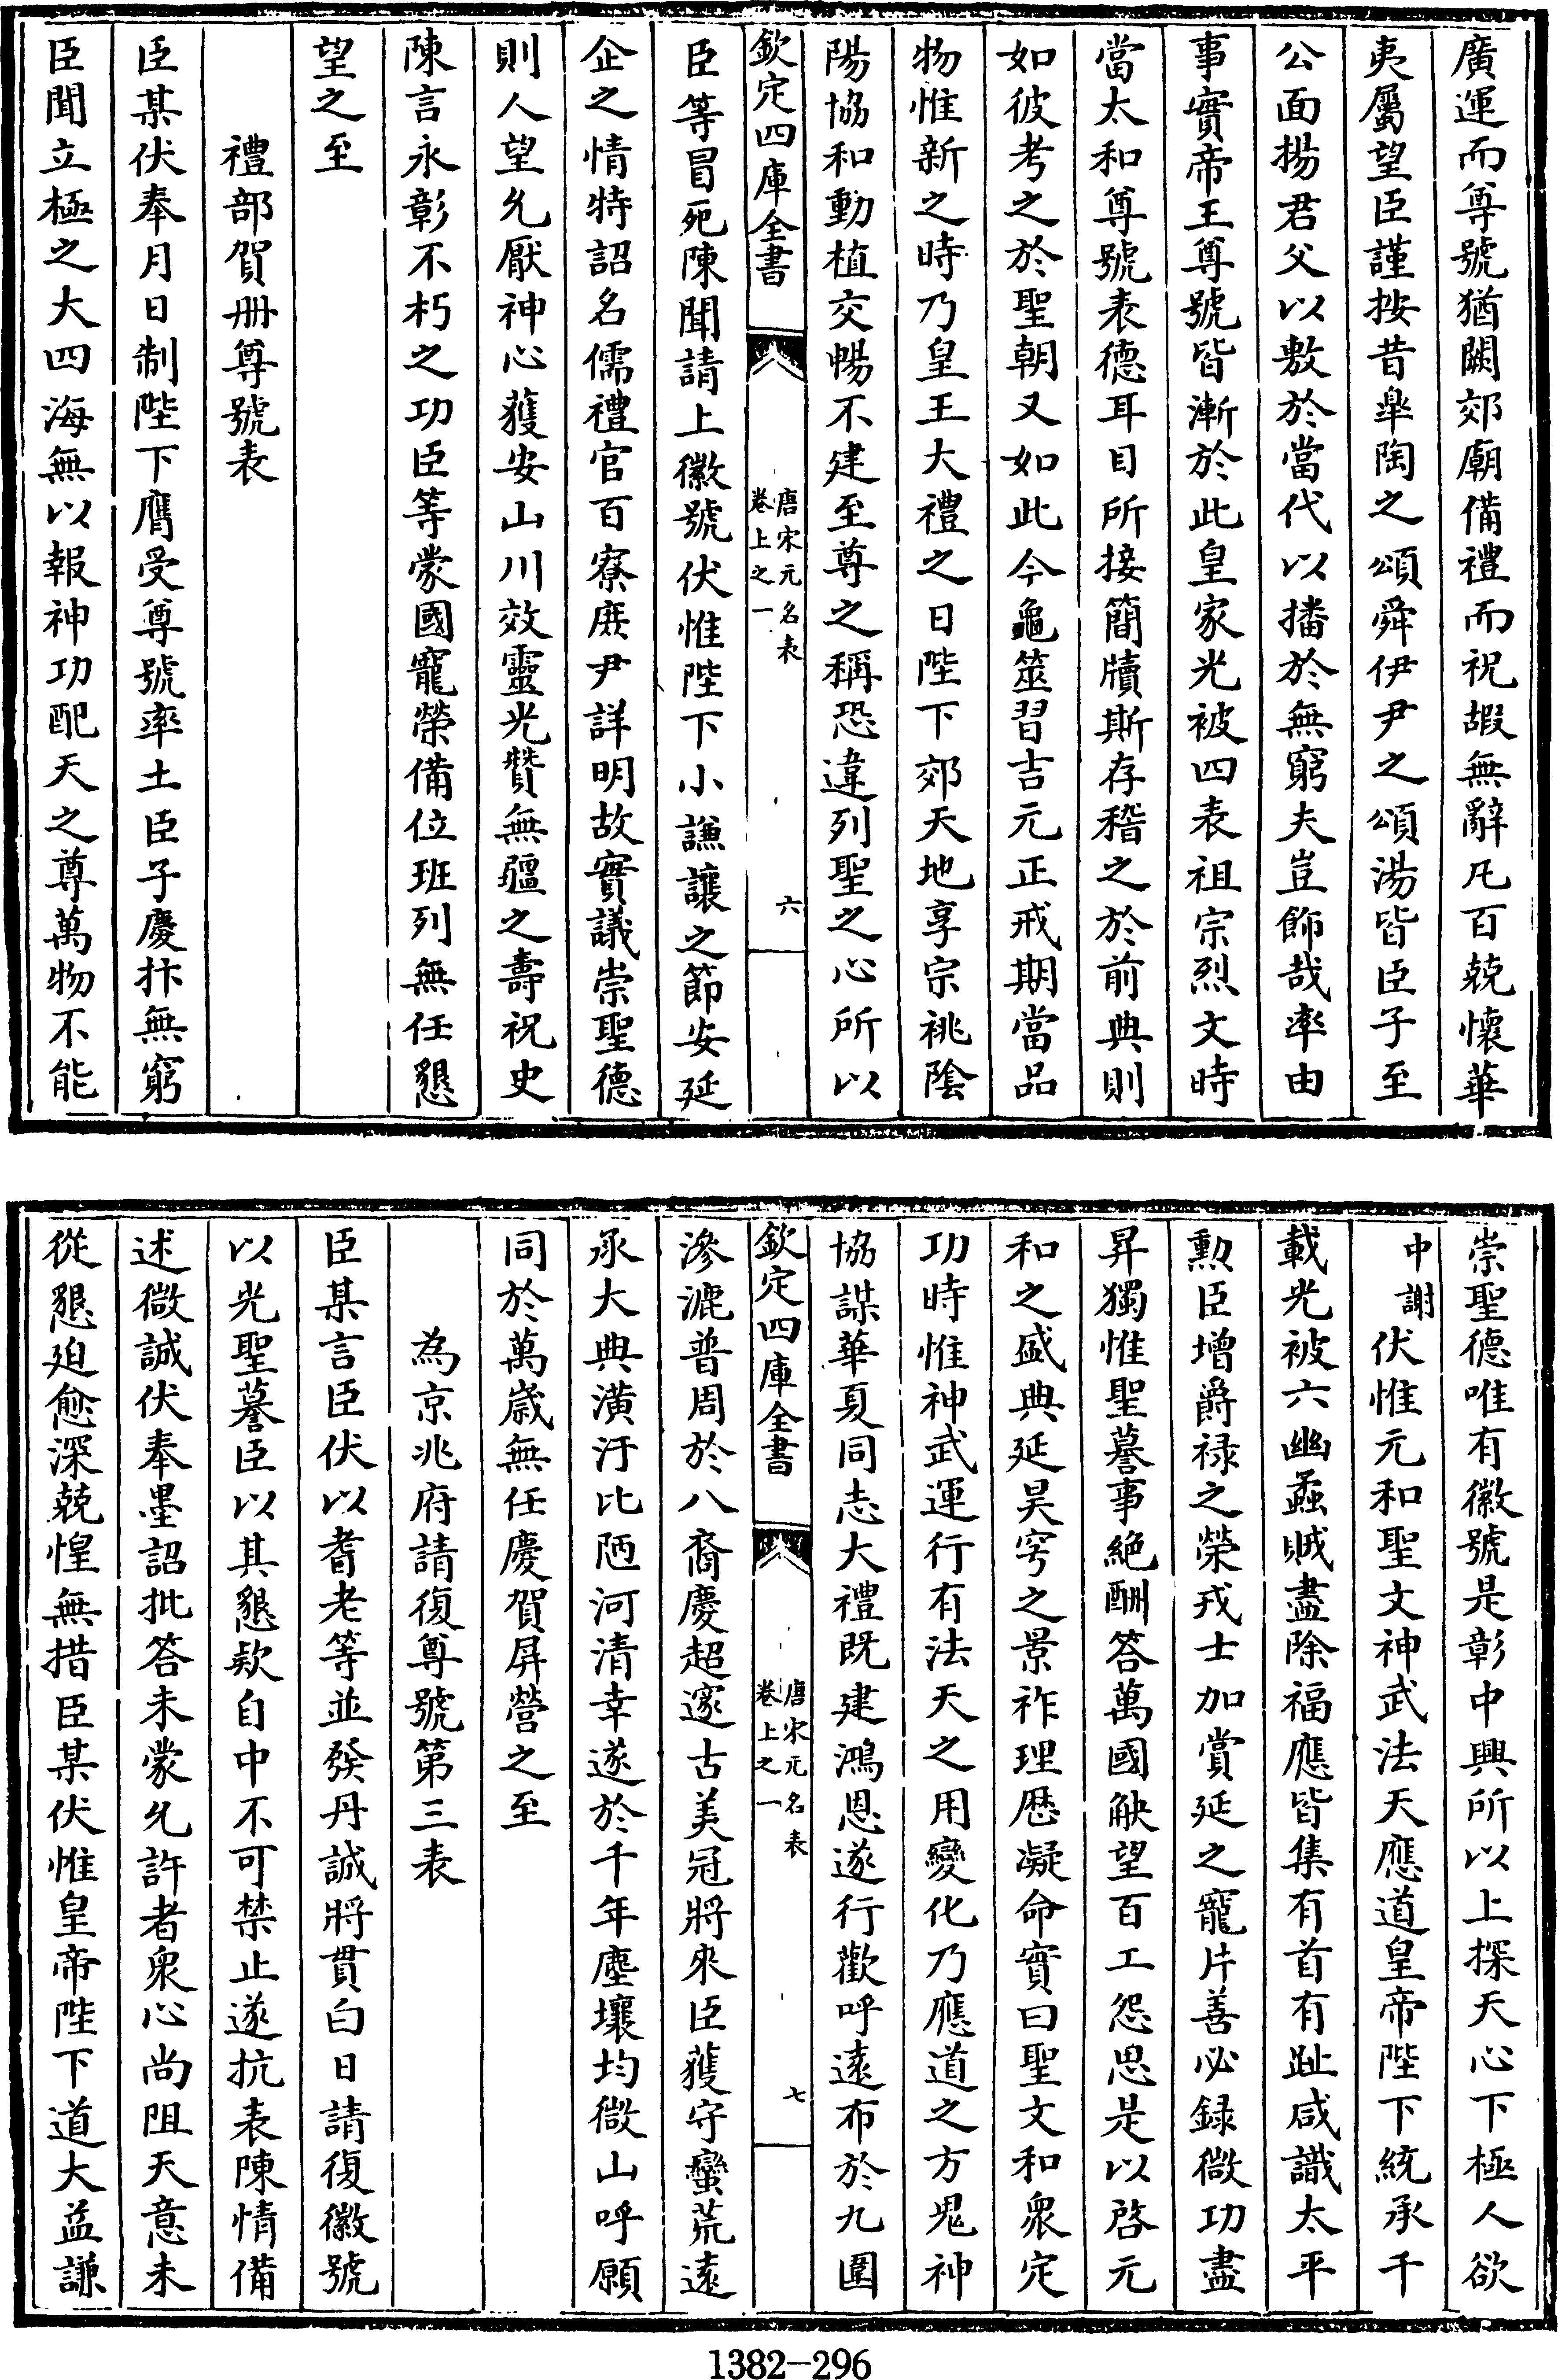 廣運而尊號猶闕郊廟備禮而祝嘏無辭凡百兢懷華
夷屬望臣謹按昔臯陶之頌舜伊尹之頌湯皆臣子至
公面揚君父以敷於當代以播於無窮夫豈飾哉率由
事實帝王尊號皆漸於此皇家光被四表祖宗烈文時
當太和尊號表德耳目所接簡牘斯存稽之於前典則
如彼考之於聖朝又如此今龜筮習吉元正戒期當品
物惟新之時乃皇王大禮之日陛下郊天地享宗祧陰
陽協和動植交暢不建至尊之稱恐違列聖之心所以
欽定四庫全書
唐宋元名表
卷上之一
六
臣等冒死陳聞請上徽號伏惟陛下小謙讓之節安延
企之情特詔名儒禮官百寮庶尹詳明故實議崇聖德
則人望允厭神心獲安山川效靈光贊無疆之壽祝史
陳言永彰不朽之功臣等蒙國寵榮備位班列無任懇
望之至
禮部賀册尊號表
臣某伏奉月日制陛下膺受尊號率土臣子慶抃無窮
臣聞立極之大四海無以報神功配天之尊萬物不能
崇聖德唯有徽號是彰中興所以上探天心下極人欲
中謝伏惟元和聖文神武法天應道皇帝陛下統承千
載光被六幽蟊賊盡除福應皆集有首有趾咸識太平
勲臣增爵禄之榮戎士加賞延之寵片善必録微功盡
昇獨惟聖謩事絶酬答萬國觖望百工怨思是以啓元
和之盛典延昊穹之景祚理厯凝命實曰聖文和衆定
功時惟神武運行有法天之用變化乃應道之方鬼神
協謀華夏同志大禮既建鴻恩遂行歡呼遠布於九圍
欽定四庫全書
唐宋元名表
卷上之一
七
滲漉普周於八裔慶超邃古美冠將來臣獲守蠻荒遠
承大典潢汙比陋河清幸遂於千年塵壤均微山呼願
同於萬歳無任慶賀屏營之至
為京兆府請復尊號第三表
臣某言臣伏以耆老等並發丹誠將貫白日請復徽號
以光聖謩臣以其懇欵自中不可禁止遂抗表陳情備
述微誠伏奉墨詔批答未蒙允許者衆心尚阻天意未
從懇迫愈深兢惶無措臣某伏惟皇帝陛下道大益謙
1382-296